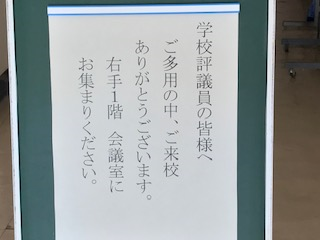 学校評議員の皆様へ
ご多用の中、ご来校
ありがとうございます。
右手1階 会議室に
お集まりください。